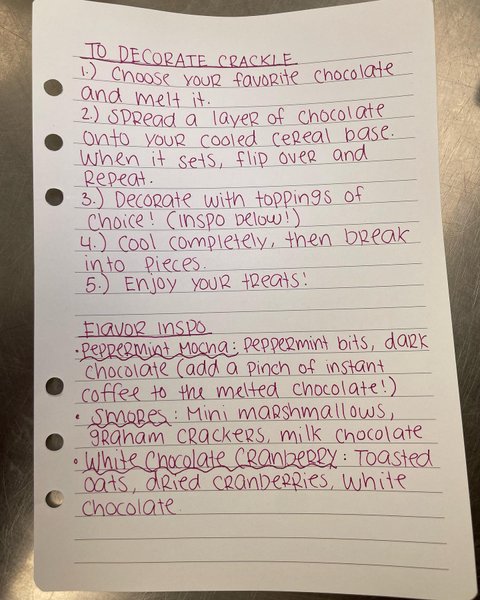 TO DECORATE CRACKLE
1.) Choose your favorite chocolate
and melt it.
2.) Spread a layer of chocolate
onto your cooled cereal base.
When it sets, flip over and
repeat.
3.) Decorate with toppings of
choice! (inspo below!)
4.) Cool completely, then break
into pieces.
5.) Enjoy your treats!
Flavor Inspo
• Peppermint Mocha: peppermint bits, dark
chocolate (add a pinch of instant
coffee to the melted chocolate!)
• Smores: Mini marshmallows,
graham crackers, milk chocolate
• White Chocolate Cranberry: Toasted
oats, dried cranberries, white
chocolate.